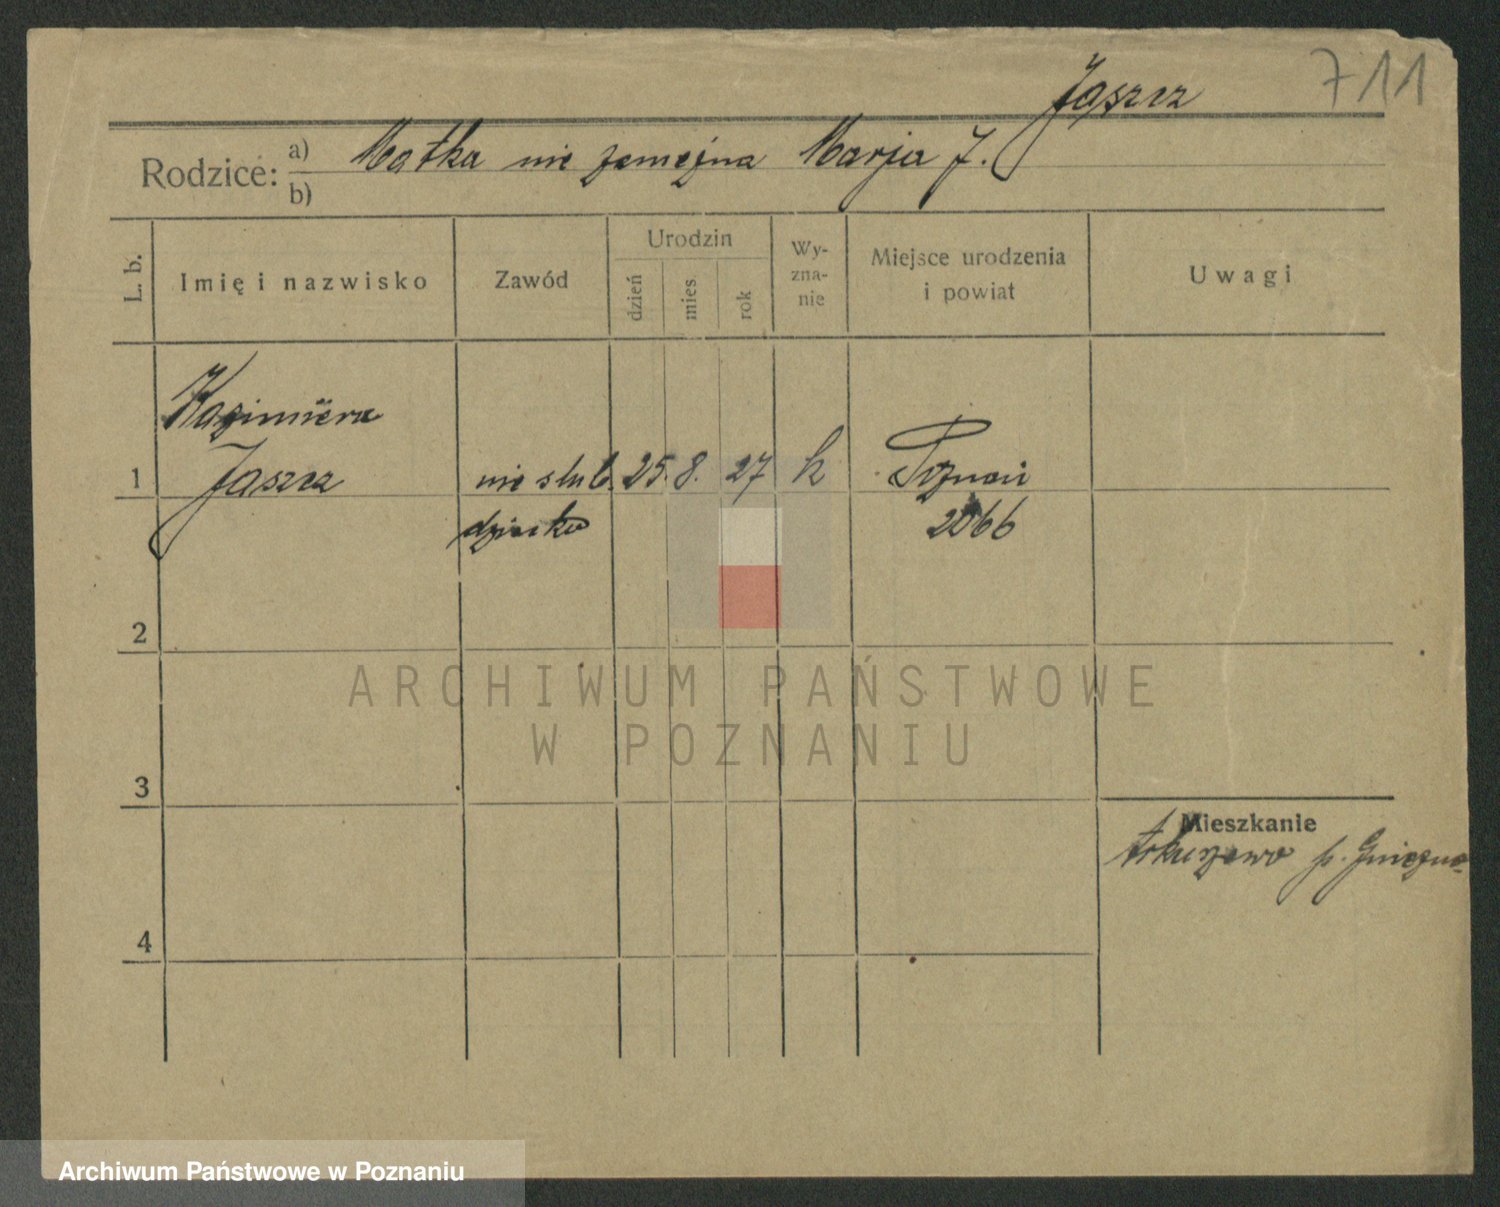 711
Jaszcz
Rodzice: a) Matka nie zamężna Marja J.
b)
L. b.
Imię i nazwisko
Zawód
Urodzin
dzień
mies.
rok
Wy-
zna-
nie
Miejsce urodzenia
i powiat
Uwagi
Kazimiera
1 Jaszcz nie ślub. 25. 8. 27 k Poznań
dziecko 2066
2
3
4
Mieszkanie
Arkuszewo p. Gniezno
ARCHIWUM PAŃSTWOWE
W POZNANIU
Archiwum Państwowe w Poznaniu